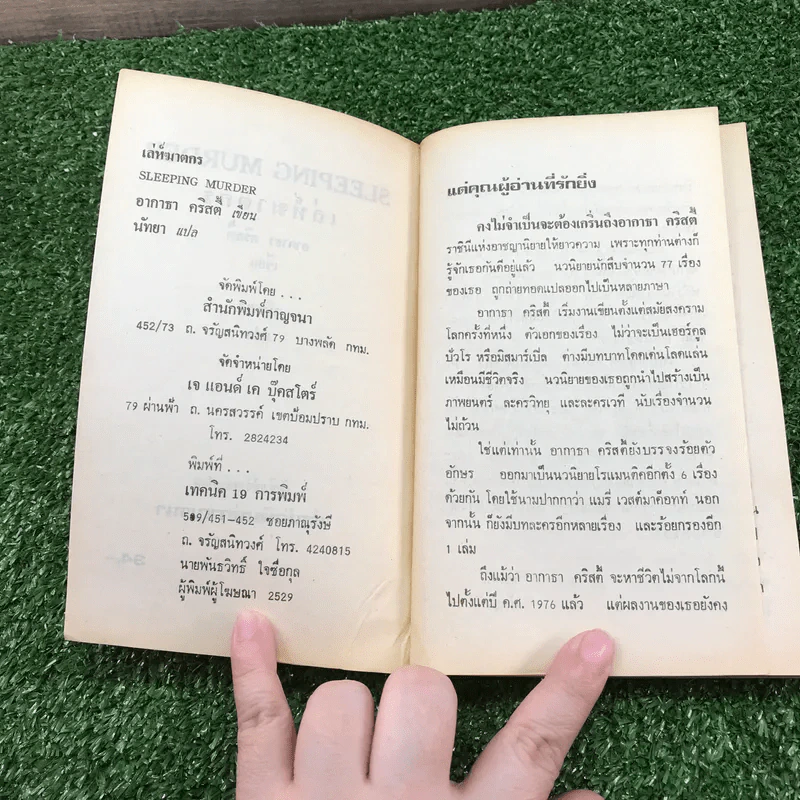 เล่ห์ฆาตกร
SLEEPING MURDER
อากาธา คริสตี้ เขียน
นัทยา แปล
จัดพิมพ์โดย ...
สำนักพิมพ์กาญจนา
452/73 ถ. จรัญสนิทวงศ์ 79 บางพลัด กทม.
จัดจำหน่ายโดย
เจ แอนด์ เค บุ๊คสโตร์
79 ผ่านฟ้า ถ. นครสวรรค์ เขตป้อมปราบ กทม.
โทร. 2824234
พิมพ์ที่ ...
เทคนิค 19 การพิมพ์
509/451-452 ซอยภาณุรังษี
ถ. จรัญสนิทวงศ์ โทร. 4240815
นายพันธวิทธิ์ ใจซื่อกุล
ผู้พิมพ์ผู้โฆษณา 2529
แด่คุณผู้อ่านที่รักยิ่ง
คงไม่จำเป็นจะต้องเกริ่นถึงอากาธา คริสตี้
ราชินีแห่งอาชญานิยายให้ยาวความ เพราะทุกท่านต่างก็
รู้จักเธอกันดีอยู่แล้ว นวนิยายนักสืบจำนวน 77 เรื่อง
ของเธอ ถูกถ่ายทอดแปลออกไปเป็นหลายภาษา
อากาธา คริสตี้ เริ่มงานเขียนตั้งแต่สมัยสงคราม
โลกครั้งที่หนึ่ง ตัวเอกของเรื่อง ไม่ว่าจะเป็นเฮอร์คูล
ปัวโร หรือมิสมาร์เปิ่ล ต่างมีบทบาทโดดเด่นโลดแล่น
เหมือนมีชีวิตจริง นวนิยายของเธอถูกนำไปสร้างเป็น
ภาพยนตร์ ละครวิทยุ และละครเวที นับเรื่องจำนวน
ไม่ถ้วน
ใช่แต่เท่านั้น อากาธา คริสตี้ยังบรรจงร้อยตัว
อักษร ออกมาเป็นนวนิยายโรแมนติคอีกตั้ง 6 เรื่อง
ด้วยกัน โดยใช้นามปากกาว่า แมรี่ เวสต์มาค็อทท์ นอก
จากนั้น ก็ยังมีบทละครอีกหลายเรื่อง และร้อยกรองอีก
1 เล่ม
ถึงแม้ว่า อากาธา คริสตี้ จะหาชีวิตไม่จากโลกนี้
ไปตั้งแต่ปี ค.ศ. 1976 แล้ว แต่ผลงานของเธอยังคง